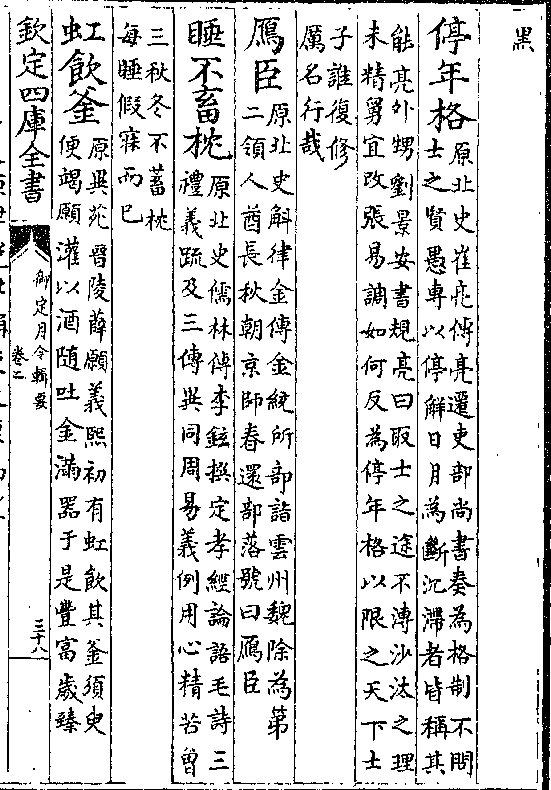 黑
停年格原北史崔亮傳亮遷吏部尚書奏為格制不問
士之賢愚專以停解日月為斷沉滯者皆稱其
能亮外甥劉景安書規亮曰取士之途不溥沙汰之理
未精舅宜改張易調如何反為停年格以限之天下士
子誰復修
厲名行哉
鴈臣原北史斛律金傳金統所部詣雲州魏除為第
二領人酋長秋朝京師春還部落號曰鴈臣
睡不畜枕原北史儒林傳李鉉撰定孝經論語毛詩三
禮義疏及三傳異同周易義例用心精苦曾
三秋冬不蓄枕
每睡假寐而已
虹飲釜原異苑晉陵薛願義熙初有虹飲其釜須臾
便竭願灌以酒隨吐金滿器于是豐富歲臻
欽定四庫全書
御定月令輯要
卷二
三十八